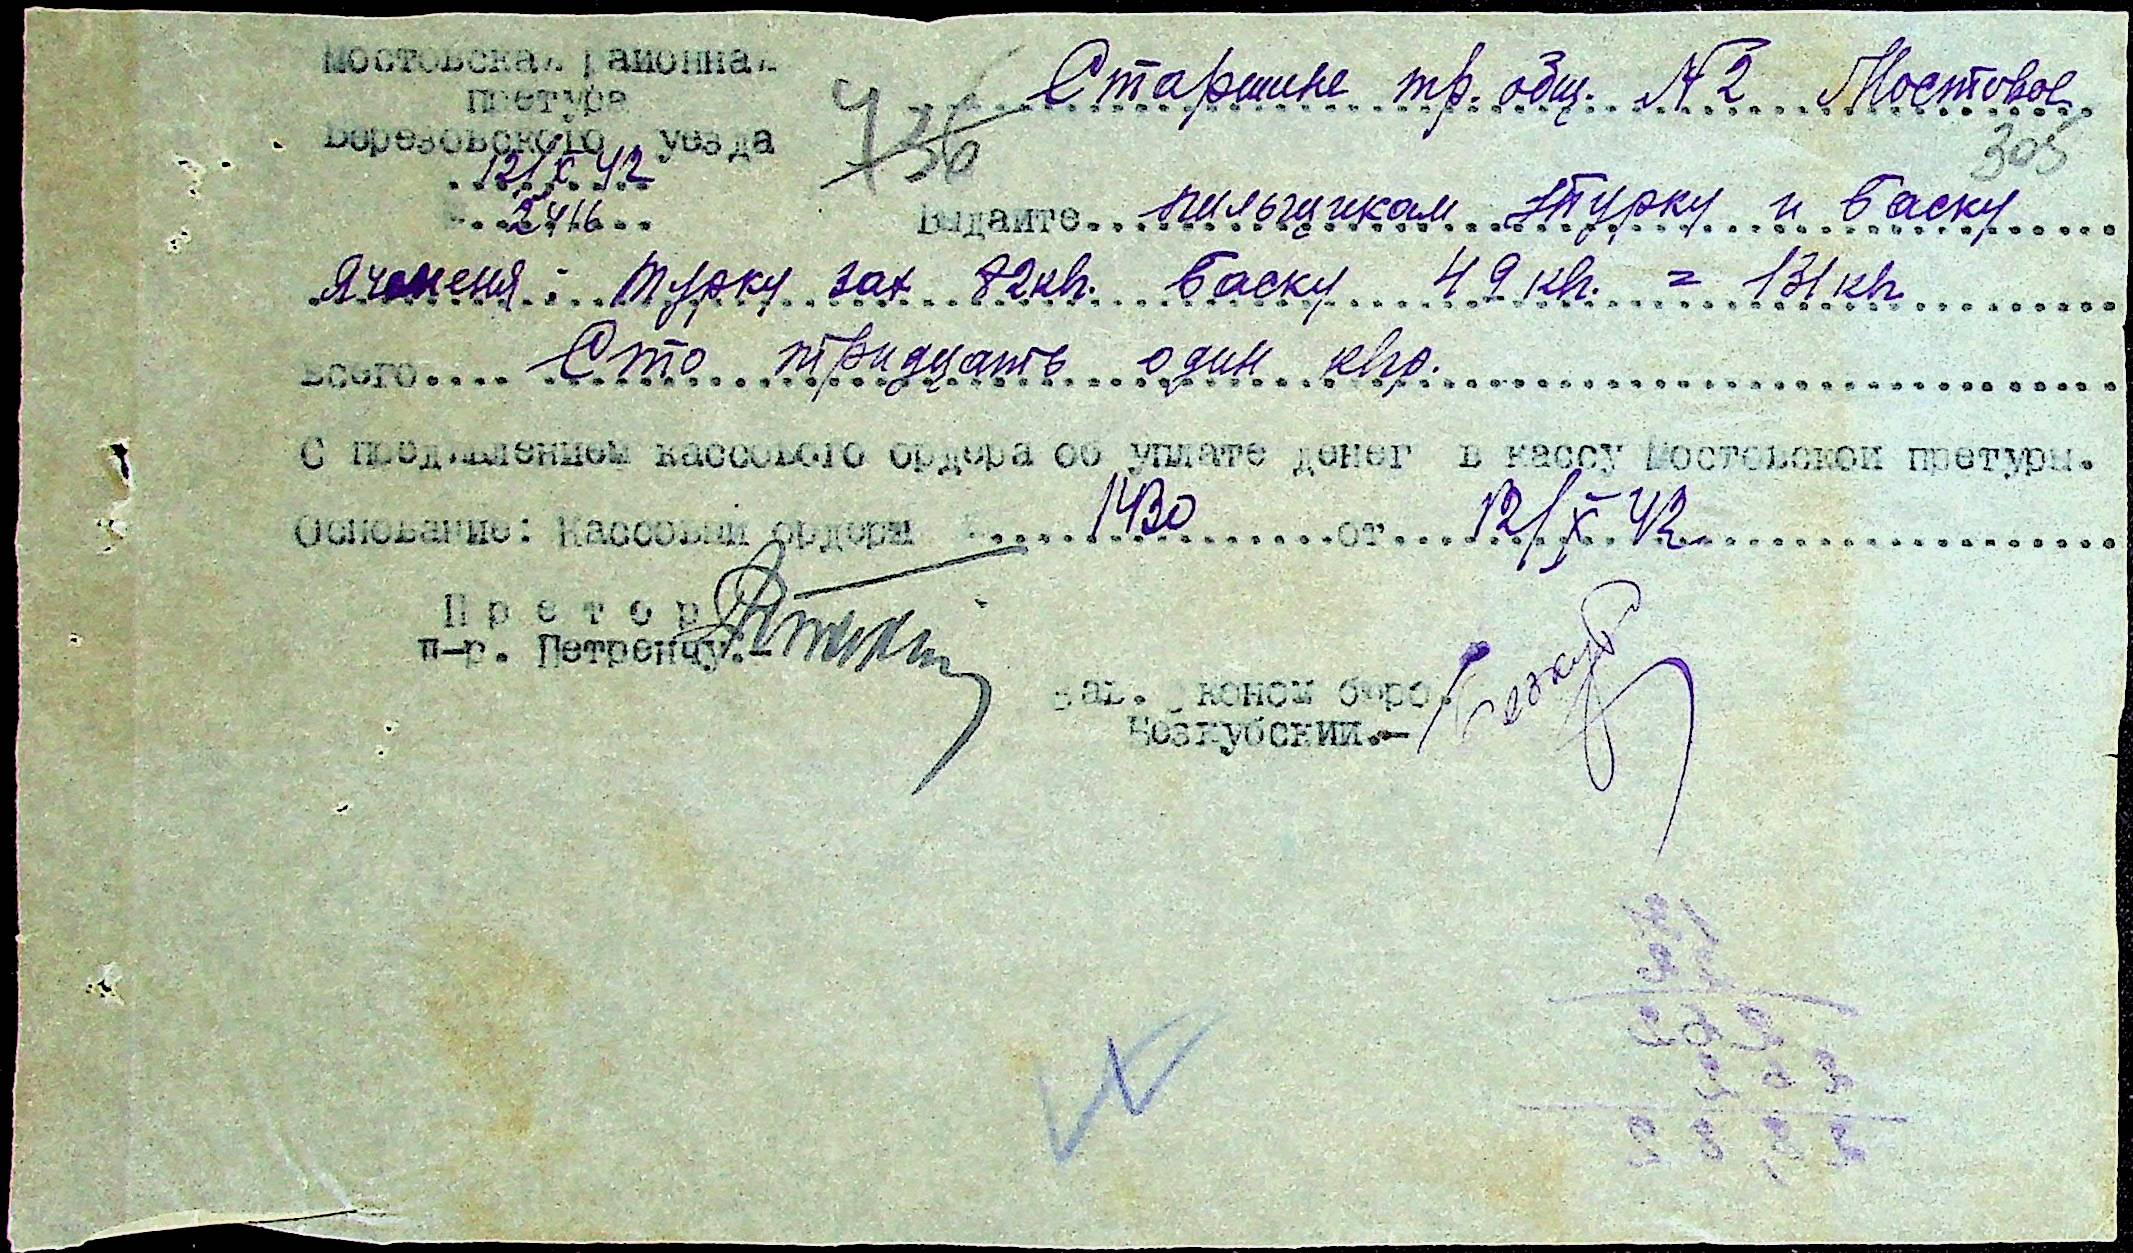 Мостовская районная
претура
Березовского уезда
12/X 42
№..2416..
Старшине тр. общ. №2 Мостовое
305
Выдайте пильщикам Турку и Баску
Ячменя: Турку Зах 82 кг. Баску 49 кг. = 131 кг
Всего.... Сто тридцать один кгр.
С предявлением кассового ордера об уплате денег в кассу Мостовской претуры.
Основание: Кассовый ордеры №...1430...от...12/X 42
Претор
п-р. Петренчу.-
Зав. Эконом бюро.
Безкубский.-